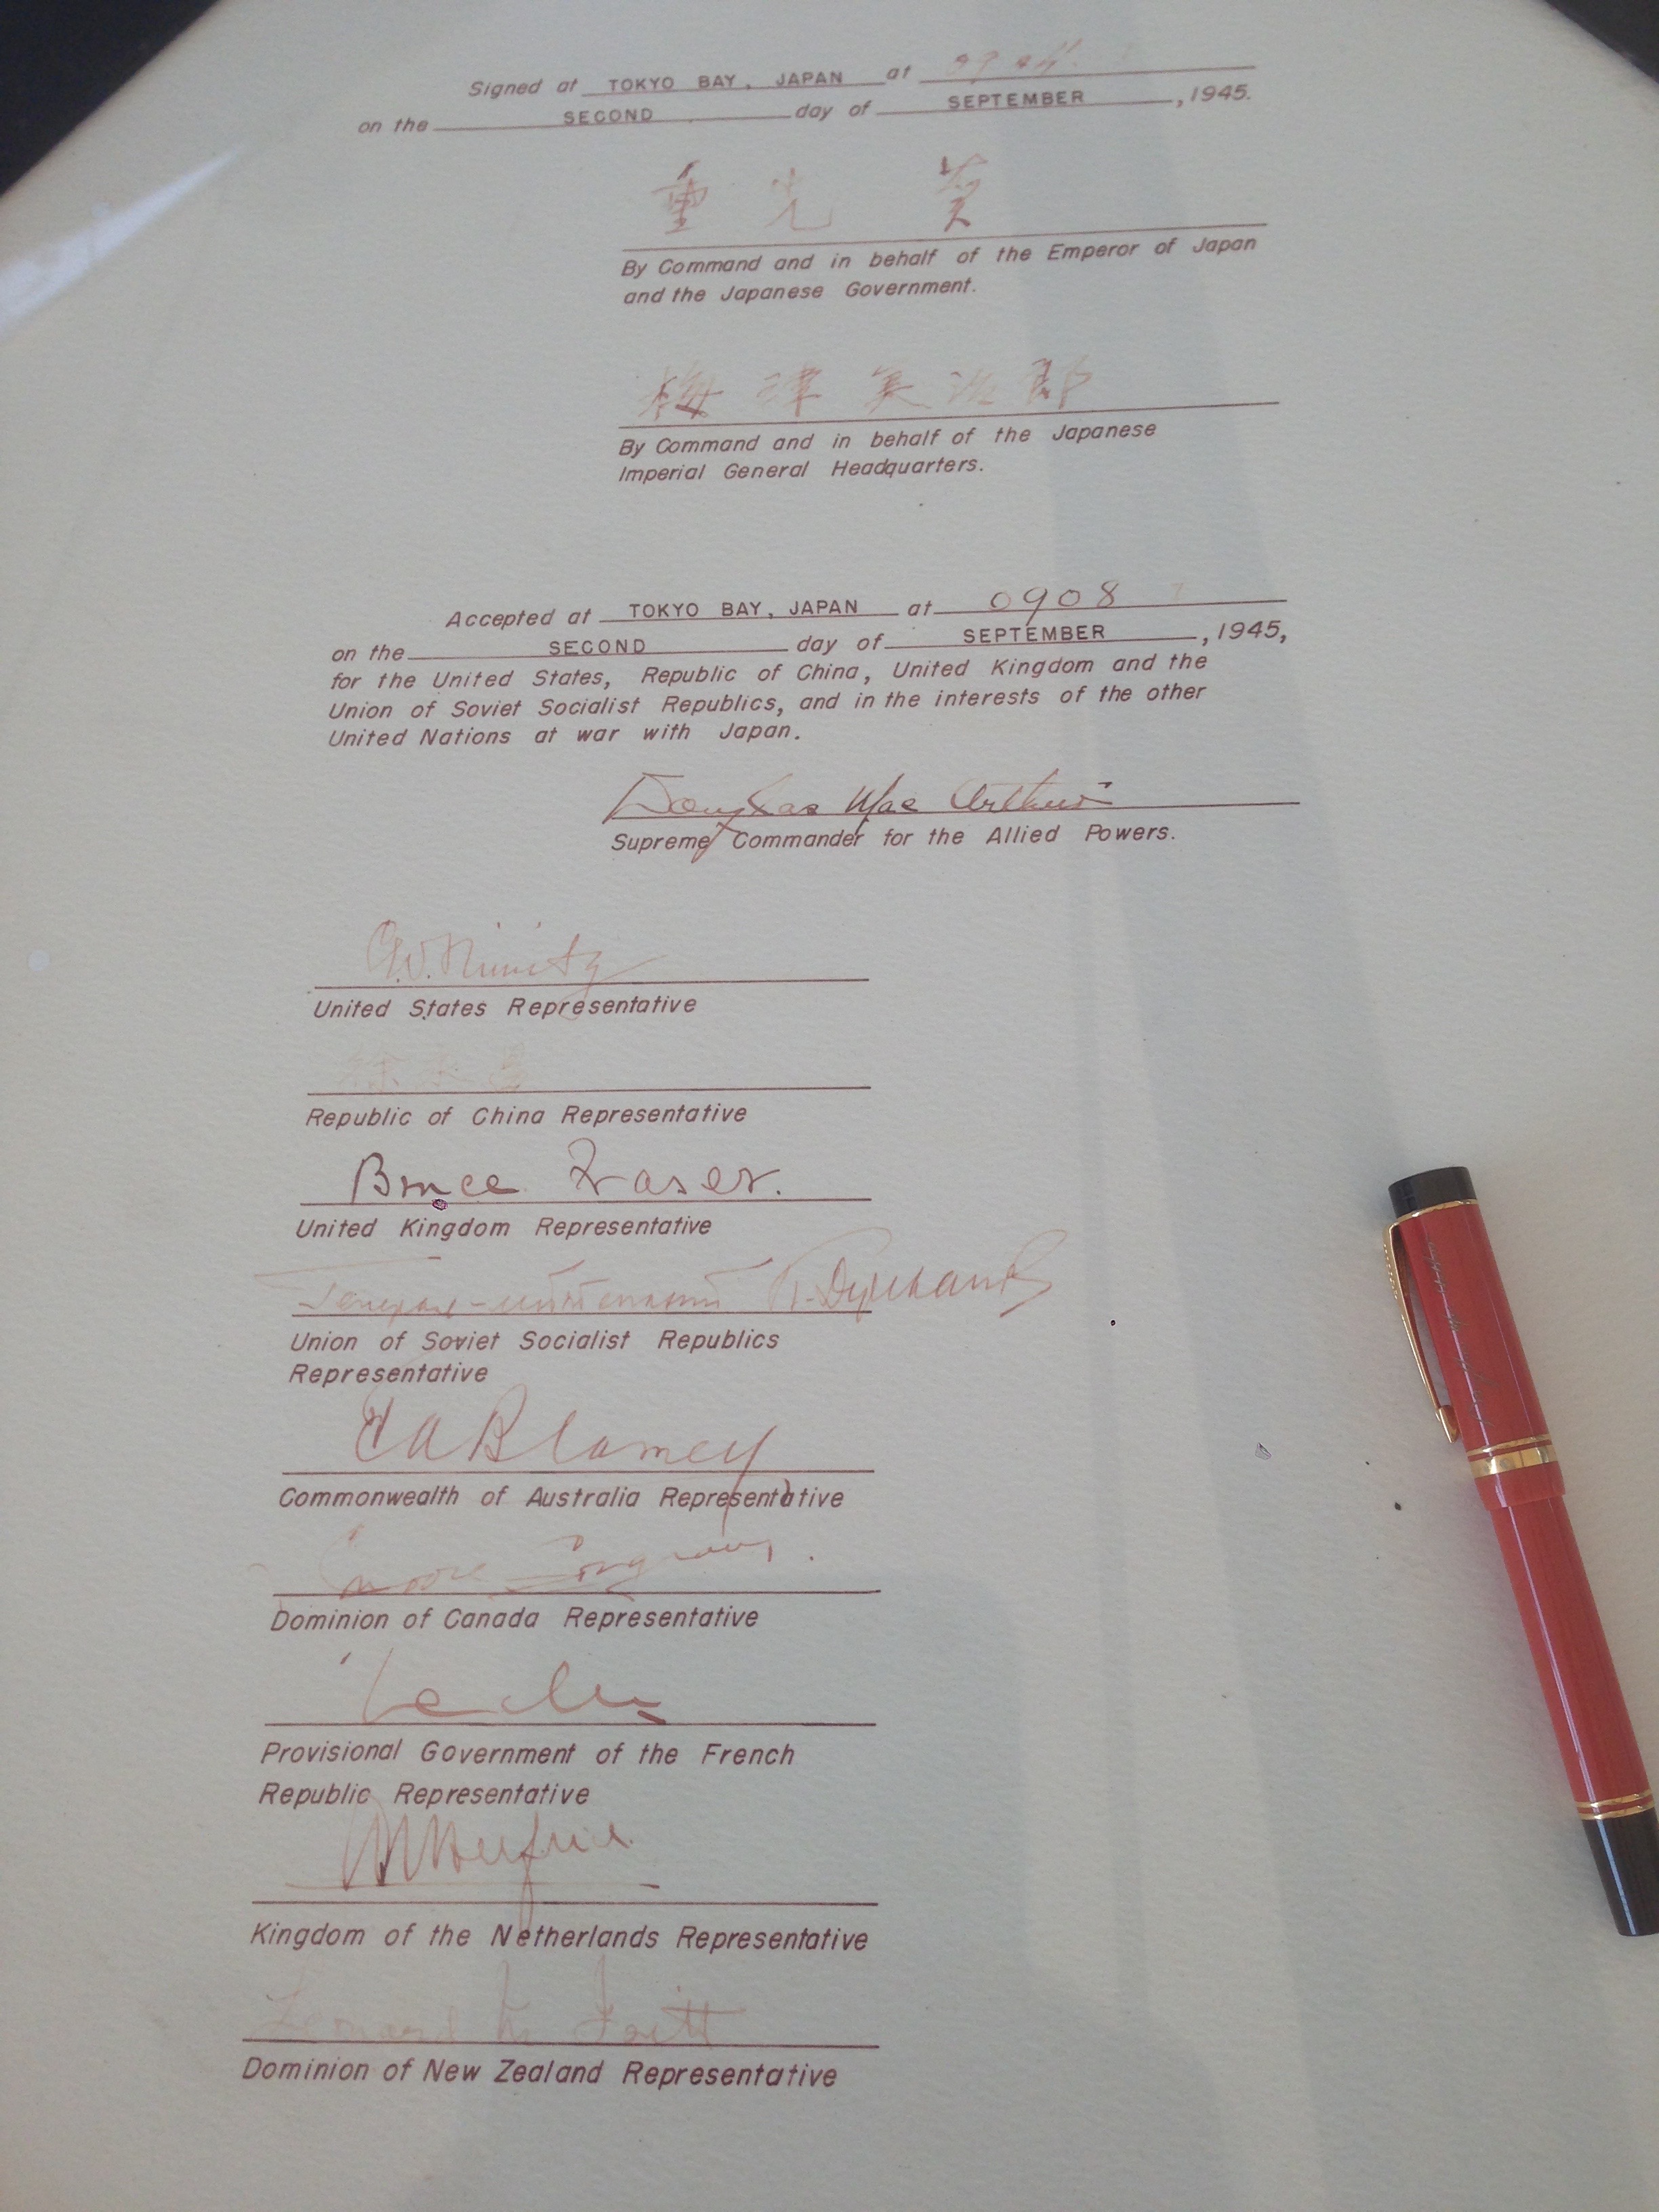 Signed at TOKYO BAY, JAPAN at
on the SECOND day of SEPTEMBER, 1945.
重光 葵
By Command and in behalf of the Emperor of Japan
and the Japanese Government.
梅津美治郎
By Command and in behalf of the Japanese
Imperial General Headquarters.
Accepted at TOKYO BAY, JAPAN at 0908
on the SECOND day of SEPTEMBER, 1945,
for the United States, Republic of China, United Kingdom and the
Union of Soviet Socialist Republics, and in the interests of the other
United Nations at war with Japan.
Douglas MacArthur
Supreme Commander for the Allied Powers.
C.W. Nimitz
United States Representative
徐永昌
Republic of China Representative
Bruce Fraser.
United Kingdom Representative
Union of Soviet Socialist Republics
Representative
T A Blamey
Commonwealth of Australia Representative
Moore Cosgrave.
Dominion of Canada Representative
Leclerc
Provisional Government of the French
Republic Representative
Helfrich
Kingdom of the Netherlands Representative
Leonard M Isitt
Dominion of New Zealand Representative